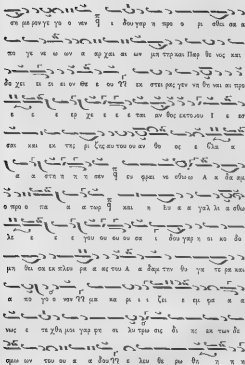 ση με ρον γε γο νεν ι δου γαρ η προ ο ρι σθει σα α
πο γε νε ω ων α αρ χαι αι ων μη τηρ και Παρ θε νος και
δο χει ει ει ον Θε ε ου εκ στει ρας γεν νη θη ναι αι προ
ε ε ε ερ χε ε ε ε ται αν θος εκ του ου Ι ε εσ
σαι και εκ της ρι ζης αυ του ου αν θος ε βλα α
α α στη η η η σεν ευ φραι νε σθω ω Α α δαμ
ο προ ο πα α α τωρ και η Ευ α α γαλ λι α σθω
λε ε ε γου ου ου ου σα ι δου γαρ η οι κο δο
μη θει σα εκ πλευ ρα α ας του Α α δαμ την θυ γα τε ρα και
α πο γο ο νον μα κα ρι ι ι ζει ε εμ φα α α
νως ε τε χθη μοι γαρ φη σι λυ τρω σις δι ης εκ των δε
σμω ων του ου α α δου ε λευ θε ρω θη η η η